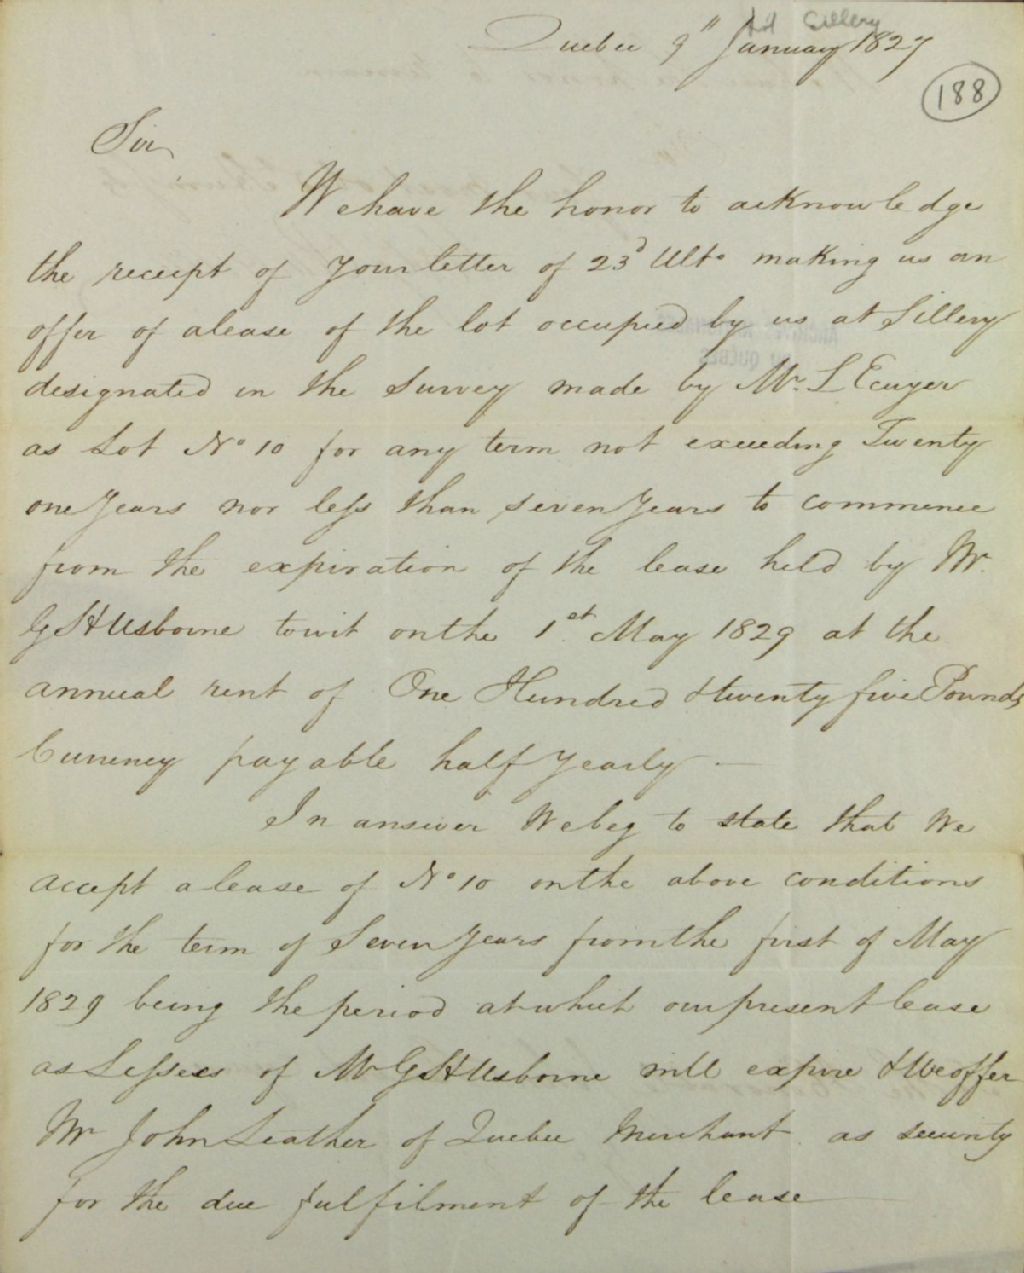 Ld Sillery
Quebec 9" January 1827
188
Sir,
We have the honor to acknowledge
the receipt of your letter of 23d Ulto making us an
offer of a lease of the lot occupied by us at Sillery
designated in the survey made by Mr. L Ecuyer
as Lot No 10 for any term not exceeding Twenty
one Years nor less than seven Years to commence
from the expiration of the lease held by Mr.
G S H Usborne towit on the 1st May 1829 at the
annual rent of One Hundred & twenty five Pounds
Currency payable half Yearly —
In answer We beg to state that We
accept a lease of No 10 on the above conditions
for the term of Seven Years from the first of May
1829 being the period at which our present lease
as Lessees of Mr G S H Usborne will expire & We offer
Mr John Leather of Quebec Merchant as security
for the due fulfilment of the lease —